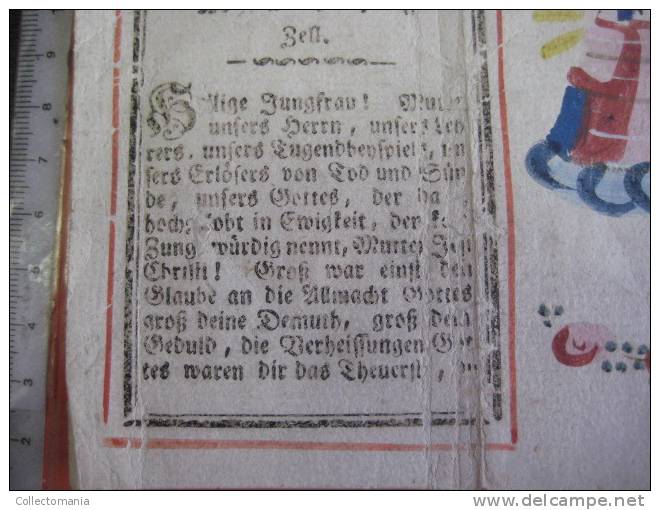 Zell.
Heilige Jungfrau! Mutter
unsers Herrn, unsers Leh
rers, unsers Tugendbeyspiels, un
sers Erlösers von Tod und Sün
de, unsers Gottes, der da
hochgelobt in Ewigkeit, der kei
Zung würdig nennt, Mutter Jesu
Christi! Groß war einst dein
Glaube an die Allmacht Gottes
groß deine Demuth, groß dein
Geduld, die Verheissungen Got
tes waren dir das Theuerste,
2
3
4
5
6
7
8
9
Collectomania
delcampe.net